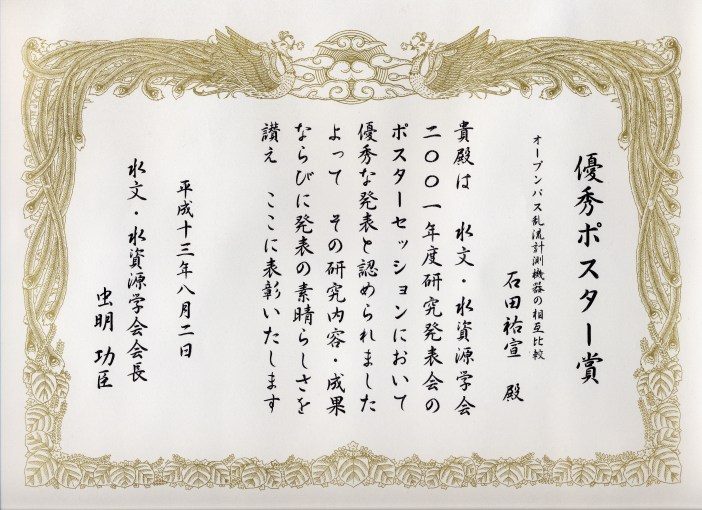 優秀ポスター賞
オープンパス乱流計測機器の相互比較
石田祐宣 殿
貴殿は 水文・水資源学会
二〇〇一年度研究発表会の
ポスターセッションにおいて
優秀な発表と認められました
よって その研究内容・成果
ならびに発表の素晴らしさを
讃え ここに表彰いたします
平成十三年八月二日
水文・水資源学会会長
虫明 功臣